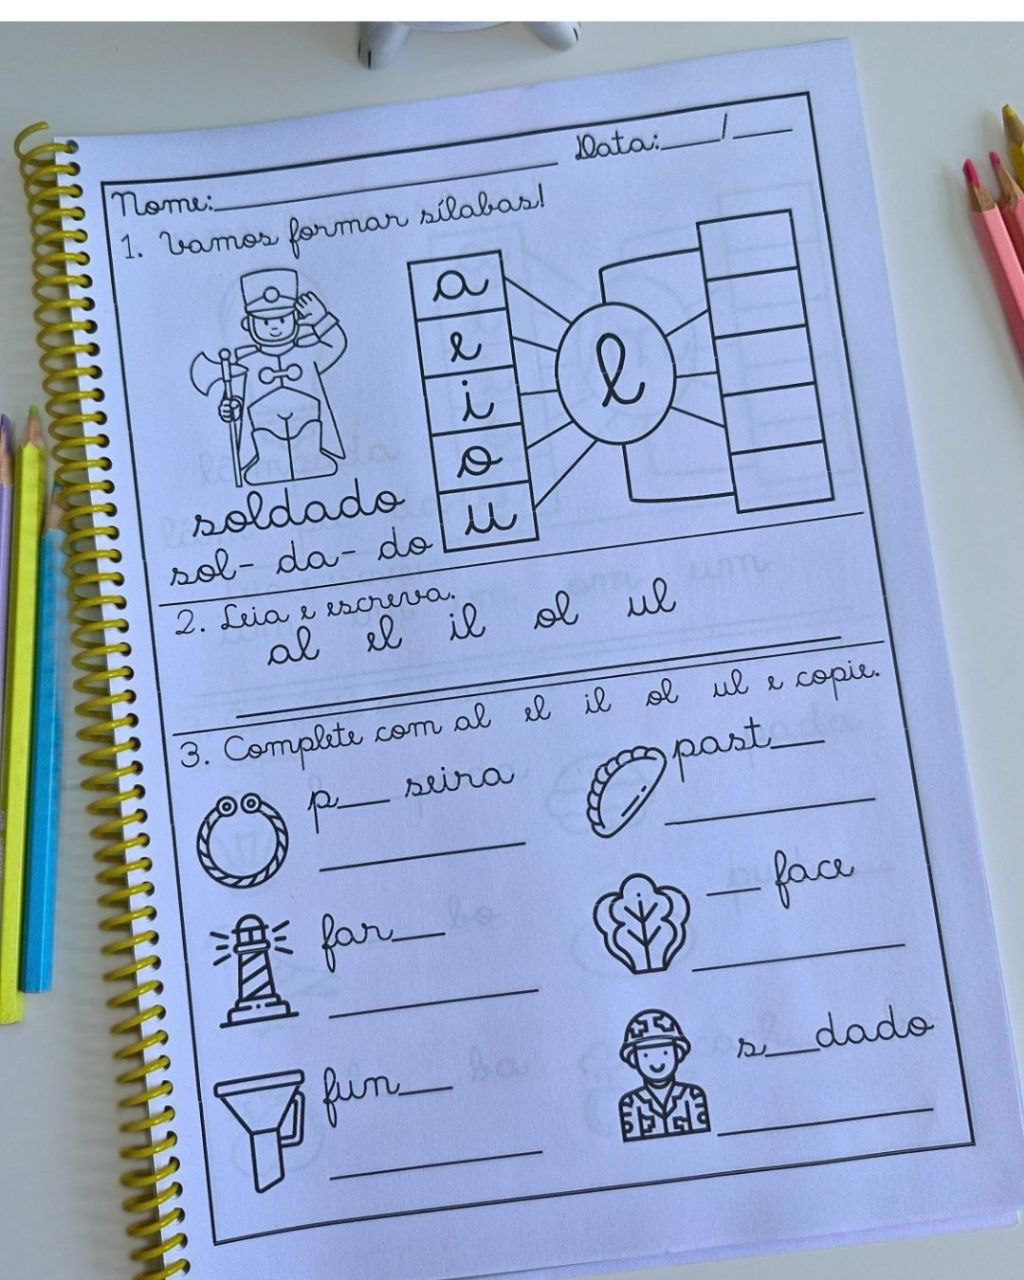 Nome:____________________ Data:____/____
1. Vamos formar sílabas!
a
e
i
o
u
l
soldado
sol- da- do
2. Leia e escreva.
al el il ol ul
3. Complete com al el il ol ul e copie.
p___ seira
past___
far___
___ face
fun___
s___dado